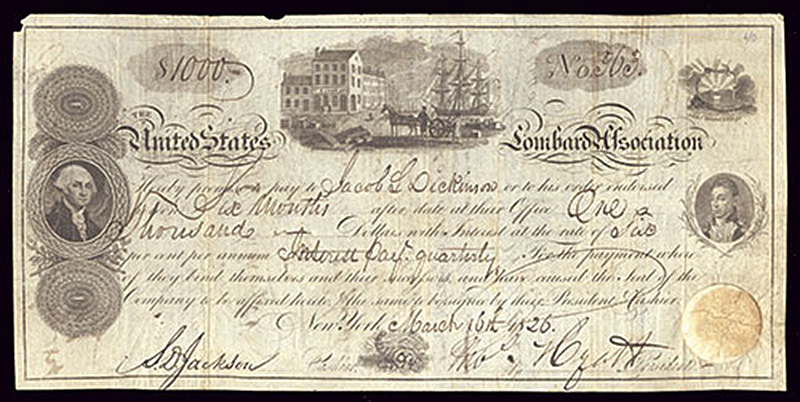 $1000.-
No. 363.
THE
United States Lombard Association
Hereby promise to pay to Jacob S Dickinson or to his order endorsed
hereon Six Months after date at their Office One
Thousand Dollars with Interest at the rate of Six
per cent per annum Interest Pay. quarterly For the payment where
of they bind themselves and their successors, and have caused the Seal of the
Company to be affixed hereto & the same to be signed by their President & Cashier.
New York March 16th 1826.
S. D. Jackson Cashier. Thos. Hyatt President